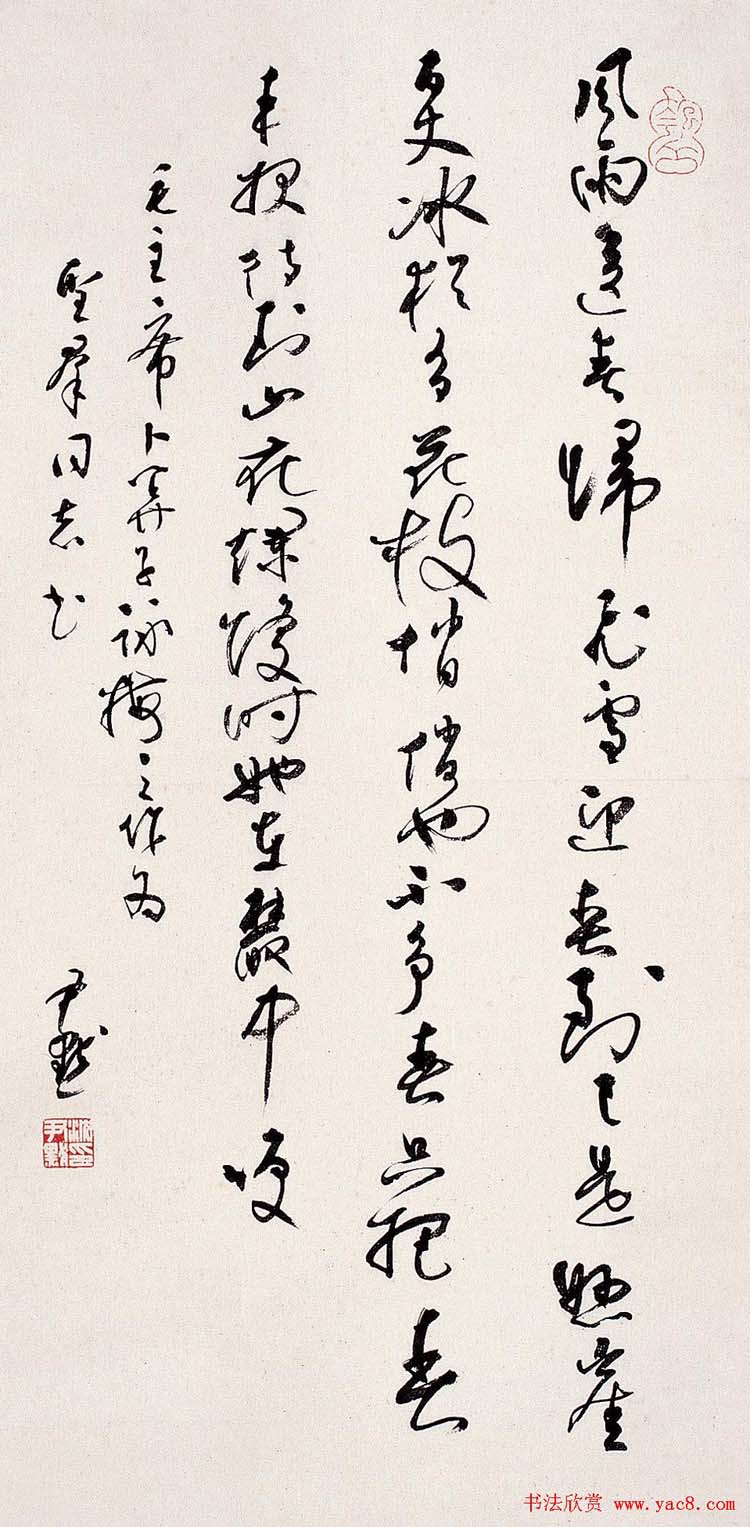 風雨送春歸飛雪迎春到已是懸崖
百丈冰猶有花枝俏俏也不争春只把春
来报待到山花爛熳時她在叢中咲
毛主席卜算子詠梅之作为
聖羣同志书 尹默
書法欣赏 www.yac8.com